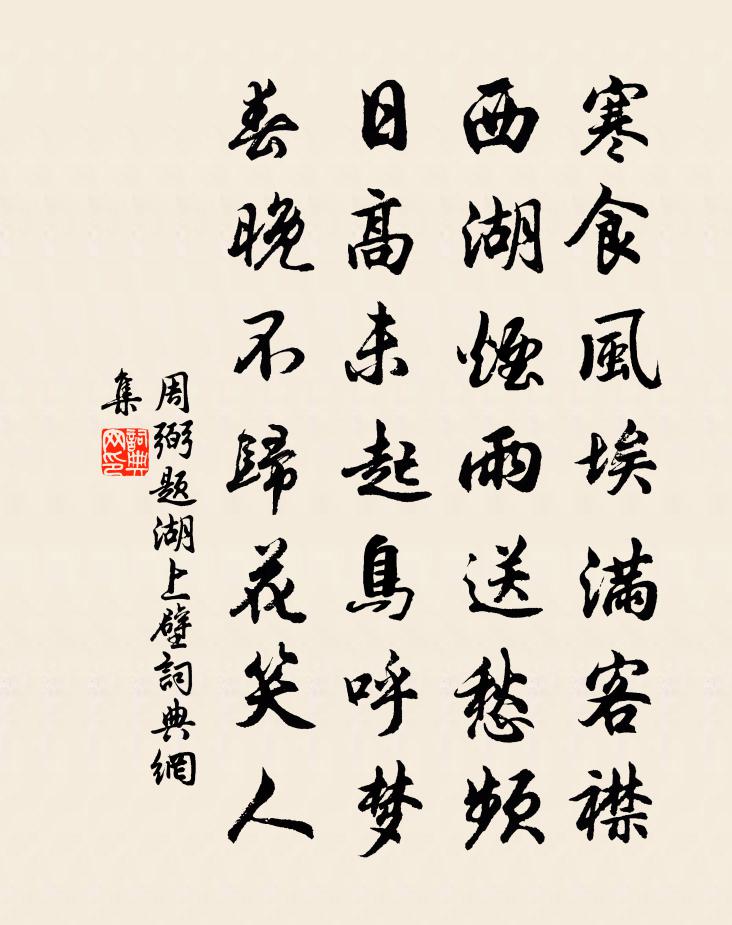 寒食風埃滿客襟
西湖煙雨送愁頻
日高未起鳥呼梦
春晚不歸花笑人
周弼题湖上壁詞典網
集
詞典
网印